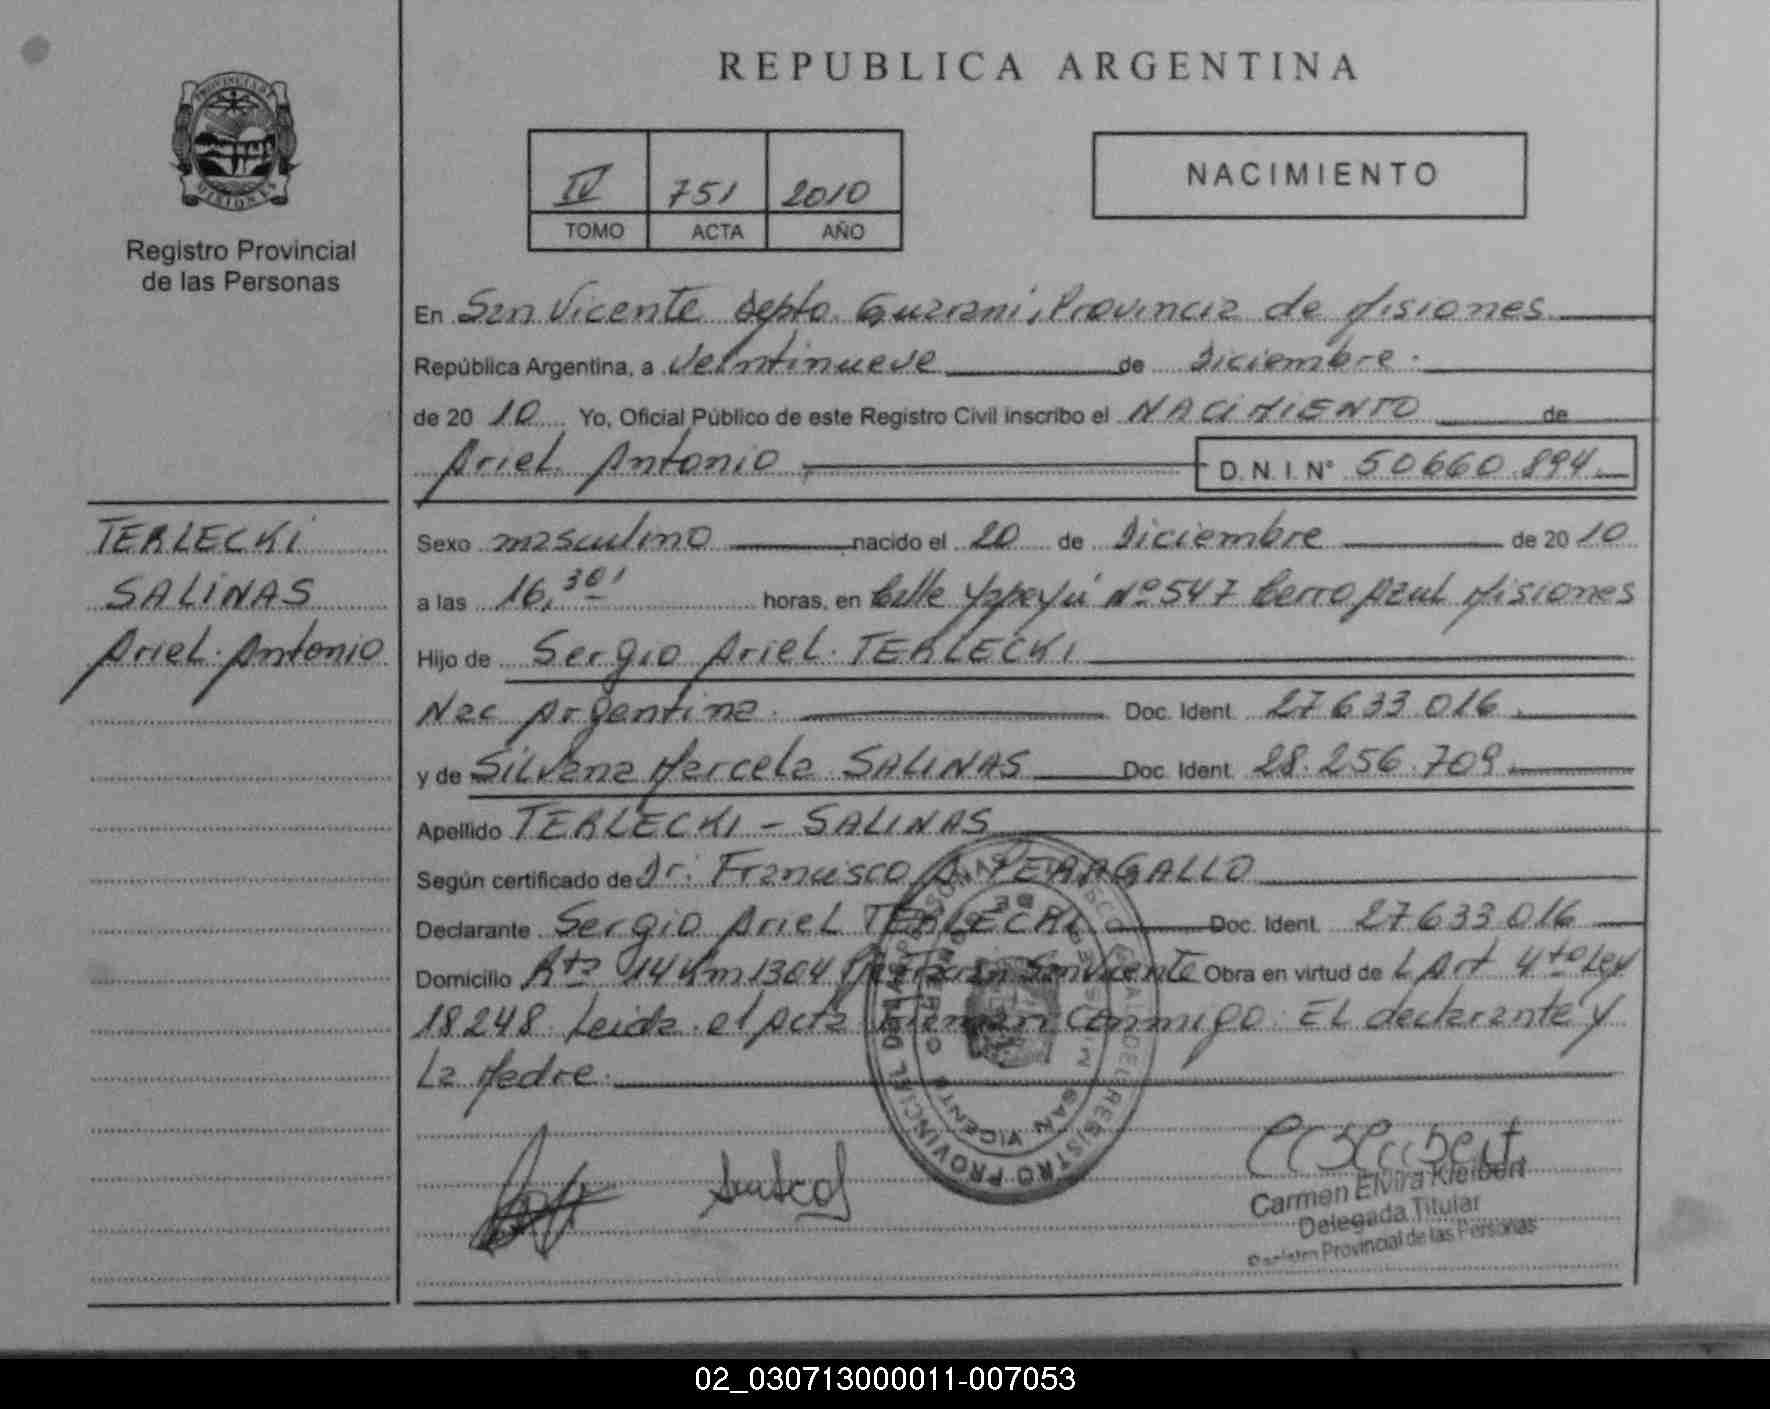 REPUBLICA ARGENTINA
PROVINCIA DE MISIONES
Registro Provincial
de las Personas
IV 751 2010
TOMO ACTA AÑO
NACIMIENTO
En San Vicente Depto. Guarani, Provincia de Misiones
República Argentina, a Veintinueve de Diciembre.
de 20 10 Yo, Oficial Público de este Registro Civil inscribo el NACIMIENTO de
Ariel Antonio D.N.I.N° 50660.894
TERLECKI
SALINAS
Ariel Antonio
Sexo masculino nacido el 20 de Diciembre de 20 10
a las 16,30' horas, en Calle Yapeyú Nº 547 Cerro Azul Misiones
Hijo de Sergio Ariel TERLECKI
Nac Argentina. Doc. Ident. 27633.016
y de Silvana Marcela SALINAS Doc. Ident. 28.256.709
Apellido TERLECKI - SALINAS
Según certificado de Dr. Francisco A. PERAGALLO
Declarante Sergio Ariel TERLECKI Doc. Ident. 27633.016
Domicilio Rta 14 Km 1304 San Vicente Obra en virtud de L Art 4to Ley
18248. Leida el Acta Firman Conmigo: EL declarante y
La Madre.
REGISTRO PROVINCIAL
SAN VICENTE
Carmen Elvira Kleibert
Delegada Titular
Registro Provincial de las Personas
02_030713000011-007053